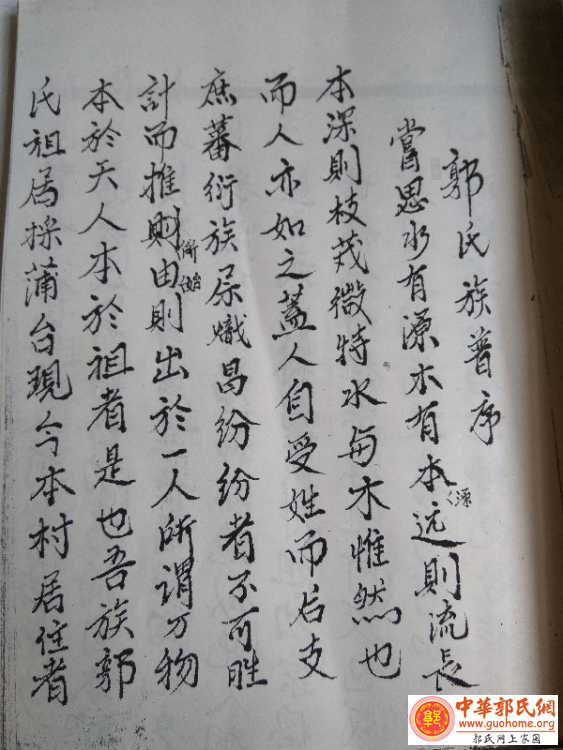 郭氏族普序
嘗思水有源木有本源远則流長
本深則枝茂微特水与木惟然也
而人亦如之蓋人自受姓而后支
庶蕃衍族熾昌纷纷者不可胜
計而推則由始則出於一人所谓万物
本於天人本於祖者是也吾族郭
氏祖居採蒲台現今本村居住者
中華郭氏網
www.guohome.org
郭氏网上家园